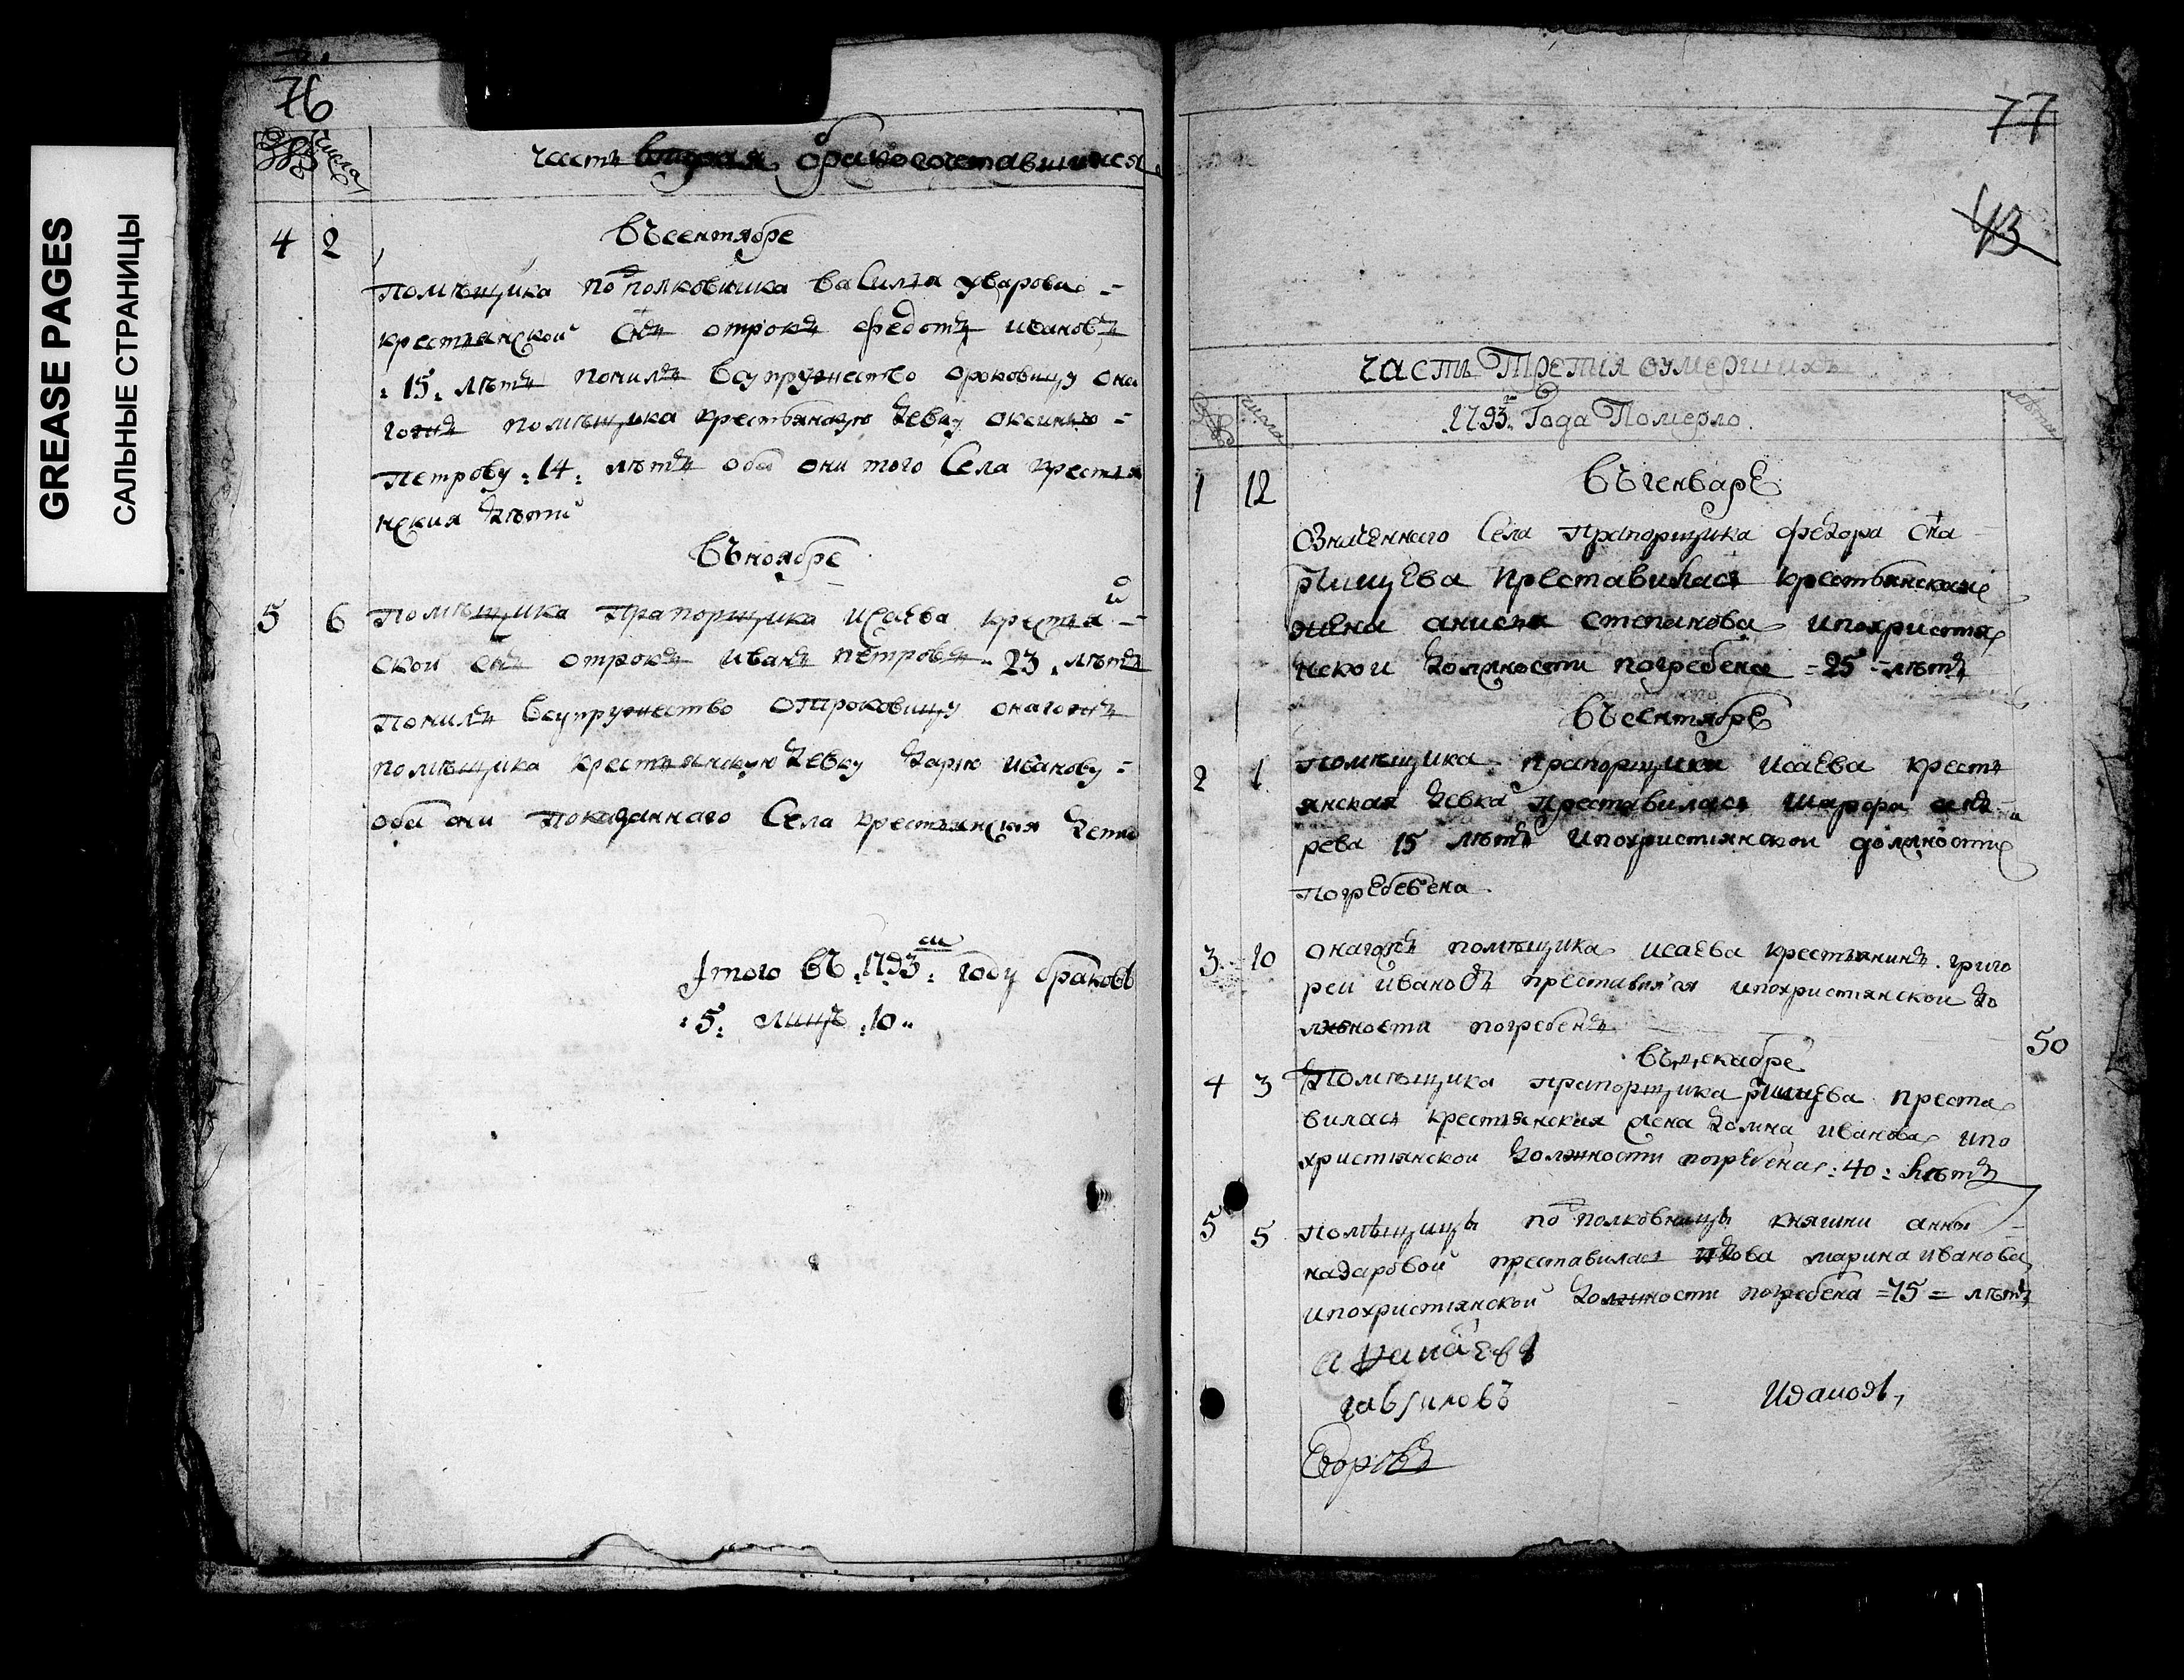 GREASE PAGES
САЛЬНЫЕ СТРАНИЦЫ
76
числа
часть вторая бракосочетавшихся
въ сентябре
4 2
помѣщика подполковника василья уварова =
крестьянской снъ отрокъ федотъ ивановъ
:15: лѣтъ понялъ всупружество отроковицу она
гожъ помѣщика крестьянскую девку оксинью =
петрову :14: лѣтъ оба они того села крестья
нския дѣти
въ ноябре
5 6 помѣщика прапорщика исаева крестьян =
ской снъ отрокъ иванъ петровъ 23 лѣтъ
понялъ всупружество отроковицу онагожъ
помѣщика крестьянскую девку дарю иванову =
оба они показаннаго села крестьянския дети
Iтого въ 1793м: году браковъ
:5: лицъ :10:
77
43
часть третія оумершихъ
числа 1793 года померло лѣта
въ генваре
1 12
означеннаго села прапорщика федора сна
ртищева преставилась крестьянская
жена анисья степанова ипохристья
нской должности погребена = 25 = лѣтъ
въ сентябре
2 1 помѣщика прапорщика исаева кресть
янская девка преставилась
рева 15 лѣтъ ипохристиянской должности
погребена
3 10 онагожъ помѣщика исаева крестьянинъ григо
реи ивановъ преставился ипохристиянской до
лжности погребенъ
50
въ декабре
4 3 помѣщика прапорщика ртищева преста
вилась крестьянская жена домна иванова ипо
християнской должности погребена :40: лѣтъ
5 5 помѣщицы подполковницы княгини анны =
назаровой преставилась вдова марина иванова
ипохристиянской должности погребена =75= лѣтъ
гавриловъ
Егоровъ